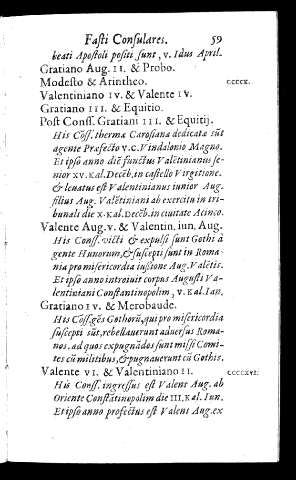 Fasti Consulares. 59
beati Apostoli positi sunt, v. Idus April.
Gratiano Aug. II. & Probo.
Modesto & Arintheo. CCCCX.
Valentiniano IV. & Valente IV.
Gratiano III. & Equitio.
Post Conss. Gratiani III. & Equitij.
His Cõss. thermæ Carosianæ dedicatæ sũt
agente Præfecto v. c. Vindalonio Magno.
Et ipso anno diẽ functus Valẽtinianus se-
nior xv. Kal. Decẽb. in castello Virgitione.
& leuatus est Valentinianus iunior Aug.
filius Aug. Valẽtiniani ab exercitu in tri-
bunali die x. Kal. Decẽb. in ciuitate Acinco.
Valente Aug. v. & Valentin. iun. Aug.
His Conss. victi & expulsi sunt Gothi à
gente Hunorum, & suscepti sunt in Roma-
nia pro misericordia iussione Aug. Valẽtis.
Et ipso anno introiuit corpus Augusti Va-
lentiniani Constantinopolim, v. Kal. Ian.
Gratiano IV. & Merobaude.
His Cõss. gẽs Gothorũ, qui pro misericordia
suscepti sũt, rebellauerunt aduersus Roma-
nos. ad quos expugnãdos sunt missi Comi-
tes cũ militibus, & pugnauerunt cũ Gothis.
Valente VI. & Valentiniano II. CCCCXVI.
His Conss. ingressus est Valens Aug. ab
Oriente Constãtinopolim die III. Kal. Iun.
Et ipso anno profectus est Valens Aug. ex